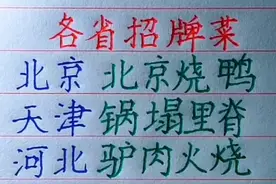 各省招牌菜
北京 北京烧鸭
天津 锅塌里脊
河北 驴肉火烧